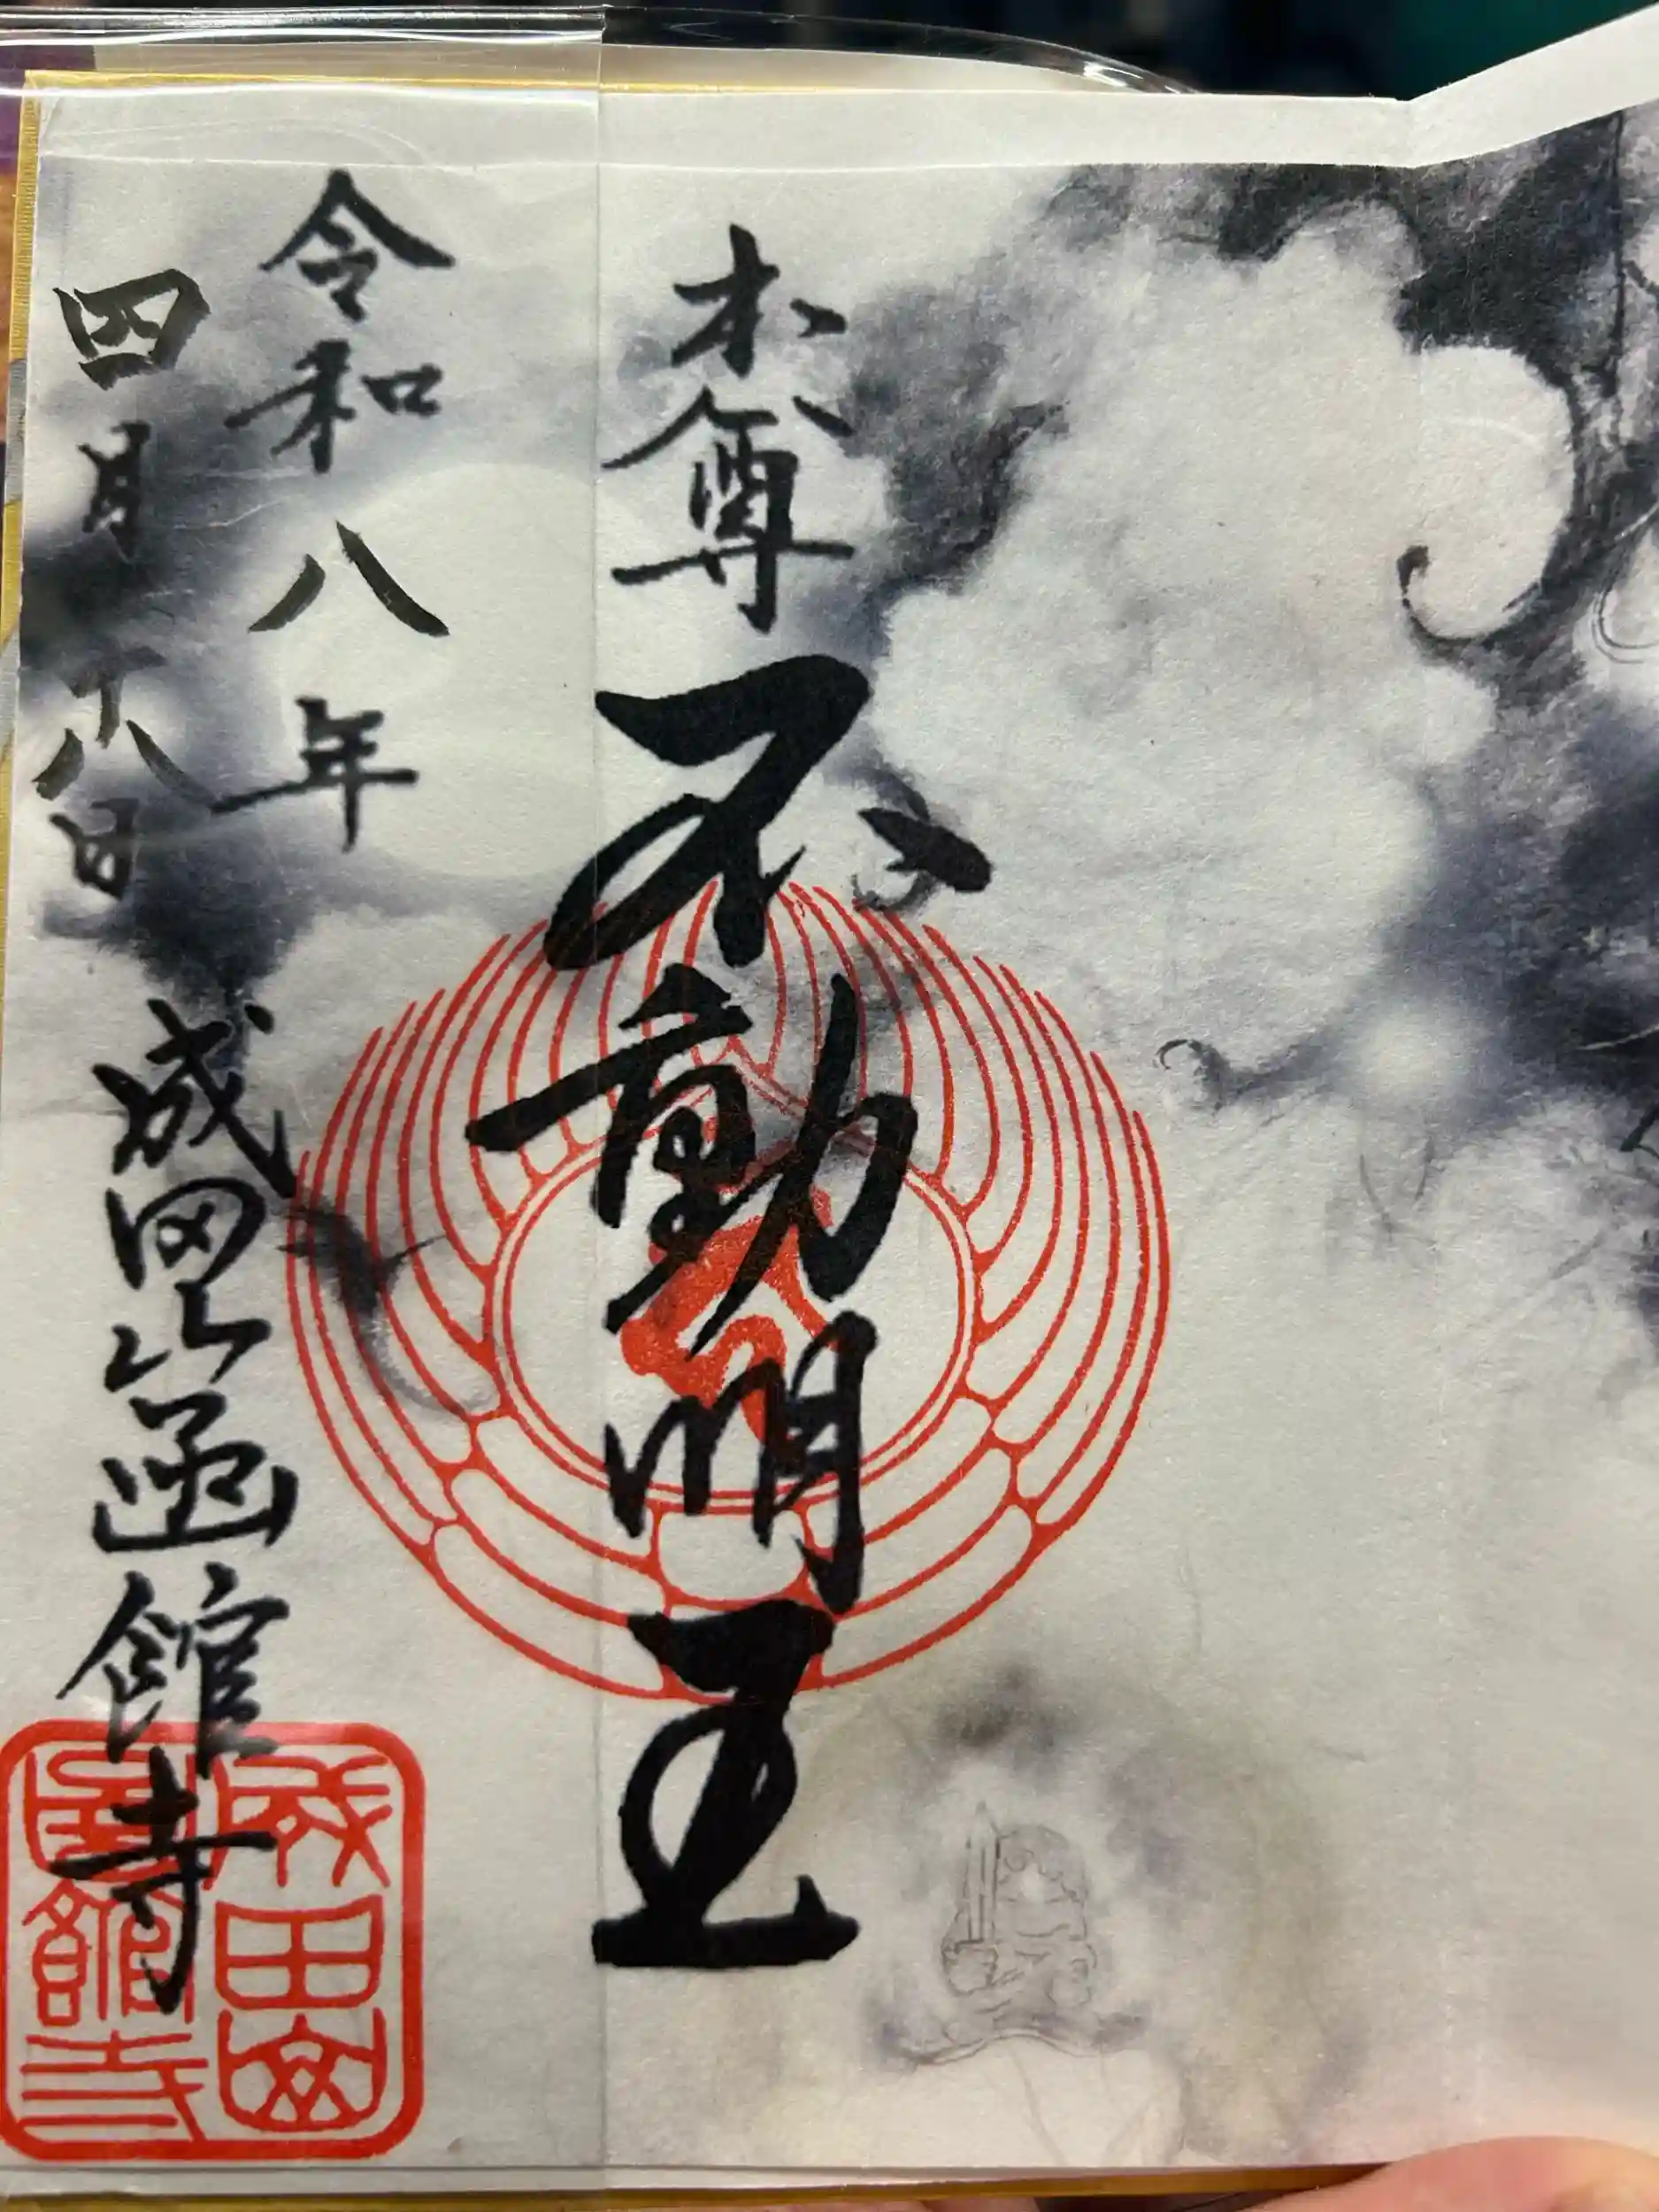 本尊 不動明王
令和八年
四月十八日
成田山函館寺
成田山
函館寺